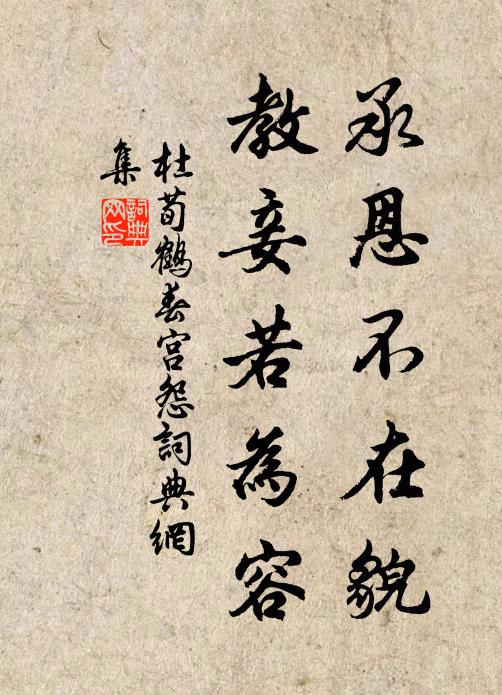 承恩不在貌
教妾若為容
杜荀鶴春宮怨詞典網
集
詞典
网印